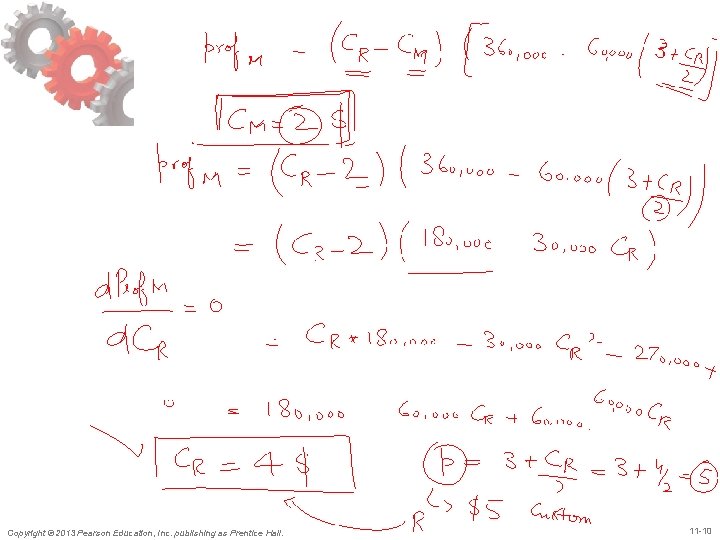 prof_M = (C_R - C_M) [360,000 . 60,000 (3 + C_R/2)]
C_M = 2 $
prof_M = (C_R - 2) (360,000 - 60.000 (3 + C_R/2))
= (C_R - 2) (180,000 30,000 C_R)
dProf_M/dC_R = 0
= C_R * 180,000 - 30,000 C_R² - 270,000 +
60,000 C_R
0 = 180,000 60,000 C_R + 60,000.
C_R = 4 $ p = 3 + C_R/2 = 3 + 4/2 = 5
R $5 Custom
Copyright © 2013 Pearson Education, Inc. publishing as Prentice Hall.
11-10